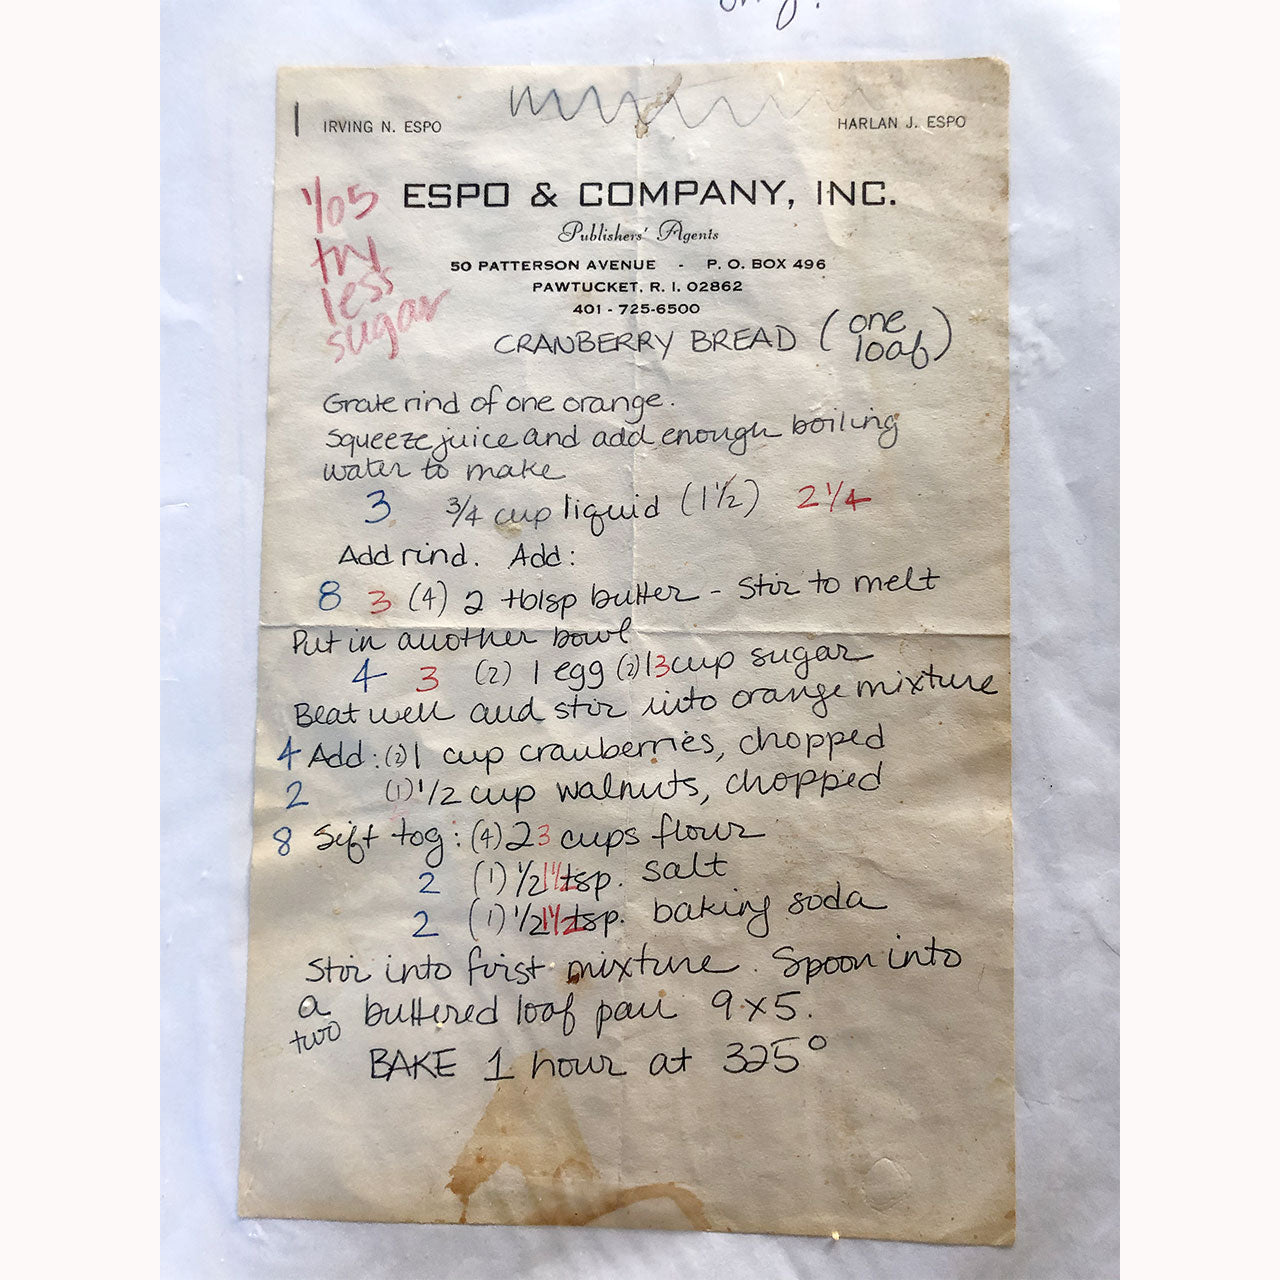 IRVING N. ESPO
HARLAN J. ESPO
1/05
try
less
sugar
ESPO & COMPANY, INC.
Publishers' Agents
50 PATTERSON AVENUE - P. O. BOX 496
PAWTUCKET, R. I. 02862
401 - 725-6500
CRANBERRY BREAD (one loaf)
Grate rind of one orange.
Squeeze juice and add enough boiling
water to make
3 3/4 cup liquid (1 1/2) 2 1/4
Add rind. Add:
8 3 (4) 2 tblsp butter - stir to melt
Put in another bowl
4 3 (2) 1 egg (2) 1 3 cup sugar
Beat well and stir into orange mixture
4 Add: (2) 1 cup cranberries, chopped
2 (1) 1/2 cup walnuts, chopped
8 Sift tog: (4) 2 3 cups flour
2 (1) 1/2 1 1/2 tsp. salt
2 (1) 1/2 1 1/2 tsp. baking soda
Stir into first mixture. Spoon into
a buttered loaf pan 9x5.
two
BAKE 1 hour at 325°